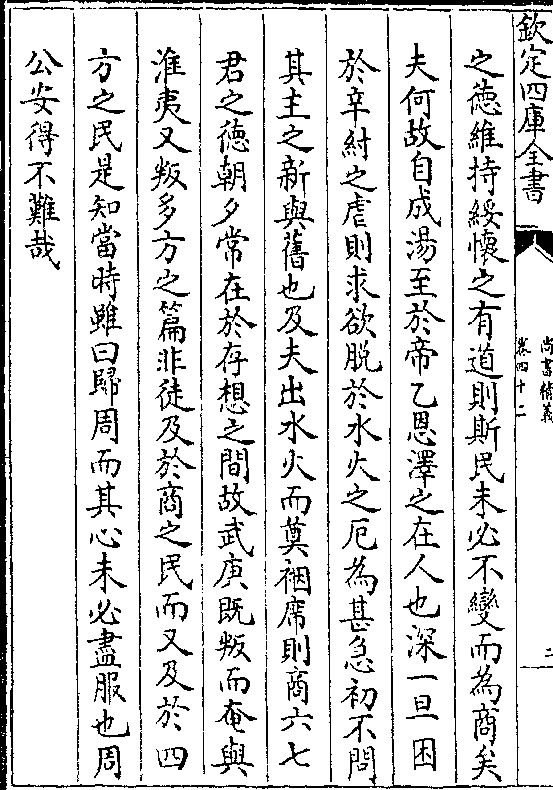 欽定四庫全書
尚書精義
卷四十二
二
之德維持綏懷之有道則斯民未必不變而為商矣
夫何故自成湯至於帝乙恩澤之在人也深一旦困
於辛紂之虐則求欲脫於水火之厄為甚急初不問
其主之新與舊也及夫出水火而奠裀席則商六七
君之德朝夕常在於存想之間故武庚既叛而奄與
淮夷又叛多方之篇非徒及於商之民而又及於四
方之民是知當時雖曰歸周而其心未必盡服也周
公安得不難哉